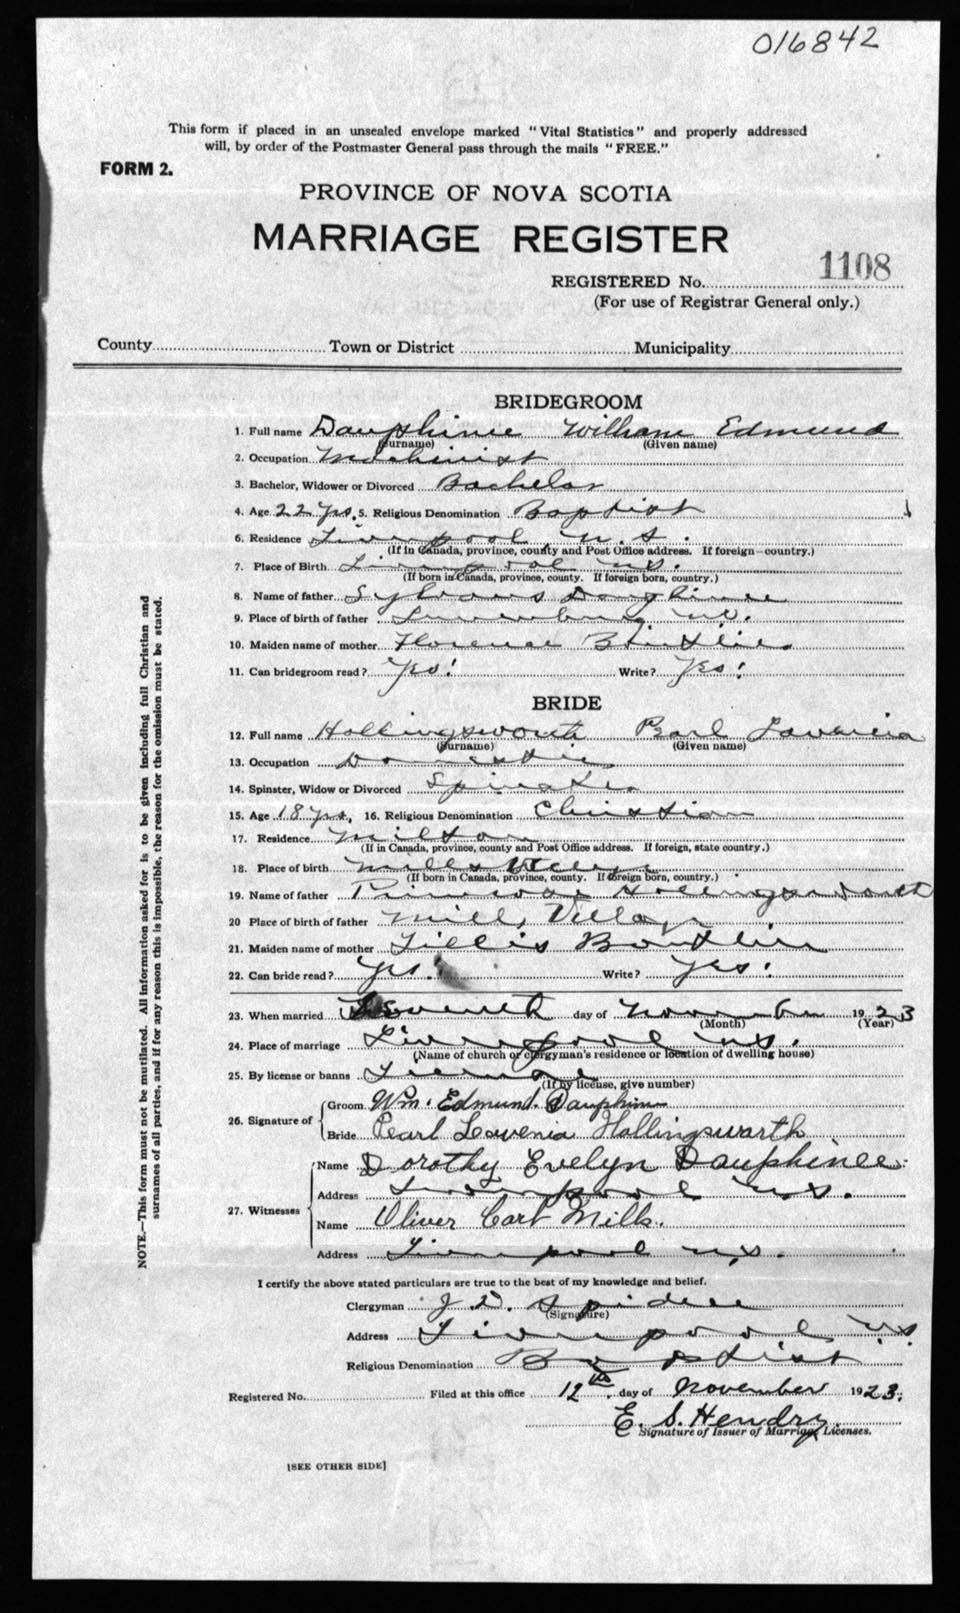 016842
This form if placed in an unsealed envelope marked "Vital Statistics" and properly addressed
will, by order of the Postmaster General pass through the mails "FREE."
FORM 2.
PROVINCE OF NOVA SCOTIA
MARRIAGE REGISTER
REGISTERED No. 1108
(For use of Registrar General only.)
County Town or District Municipality
BRIDEGROOM
1. Full name Dauphinee William Edmund
(Surname) (Given name)
2. Occupation Machinist
3. Bachelor, Widower or Divorced Bachelor
4. Age 22 yrs. 5. Religious Denomination Baptist
6. Residence Liverpool N.S.
(If in Canada, province, county and Post Office address. If foreign—country.)
7. Place of Birth Liverpool N.S.
(If born in Canada, province, county. If foreign born, country.)
8. Name of father Dauphinee
9. Place of birth of father Lunenburg N.S.
10. Maiden name of mother Florence
11. Can bridegroom read? Yes! Write? Yes!
BRIDE
12. Full name Hollingsworth Pearl
(Surname) (Given name)
13. Occupation Domestic
14. Spinster, Widow or Divorced Spinster
15. Age 18 yrs, 16. Religious Denomination Christian
17. Residence Milton
(If in Canada, province, county and Post Office address. If foreign, state country.)
18. Place of birth Mill Village
(If born in Canada, province, county. If foreign born, country.)
19. Name of father Hollingsworth
20 Place of birth of father Mill Village
21. Maiden name of mother
22. Can bride read? Yes! Write? Yes!
23. When married Seventh day of November 1923
(Month) (Year)
24. Place of marriage Liverpool N.S.
(Name of church or clergyman's residence or location of dwelling house)
25. By license or banns License
(If by license, give number)
26. Signature of Groom Wm. Edmund Dauphinee
Bride Pearl Lewenia Hollingswarth
27. Witnesses Name Dorothy Evelyn Dauphinee
Address Liverpool N.S.
Name Oliver Carl Mills.
Address Liverpool N.S.
I certify the above stated particulars are true to the best of my knowledge and belief.
Clergyman J. D. Spidell
(Signature)
Address Liverpool N.S.
Religious Denomination Baptist
Registered No. Filed at this office 12th day of November 1923.
E. S. Hendry.
Signature of Issuer of Marriage Licenses.
[SEE OTHER SIDE]
NOTE.—This form must not be mutilated. All information asked for is to be given including full Christian and
surnames of all parties, and if for any reason this is impossible, the reason for the omission must be stated.